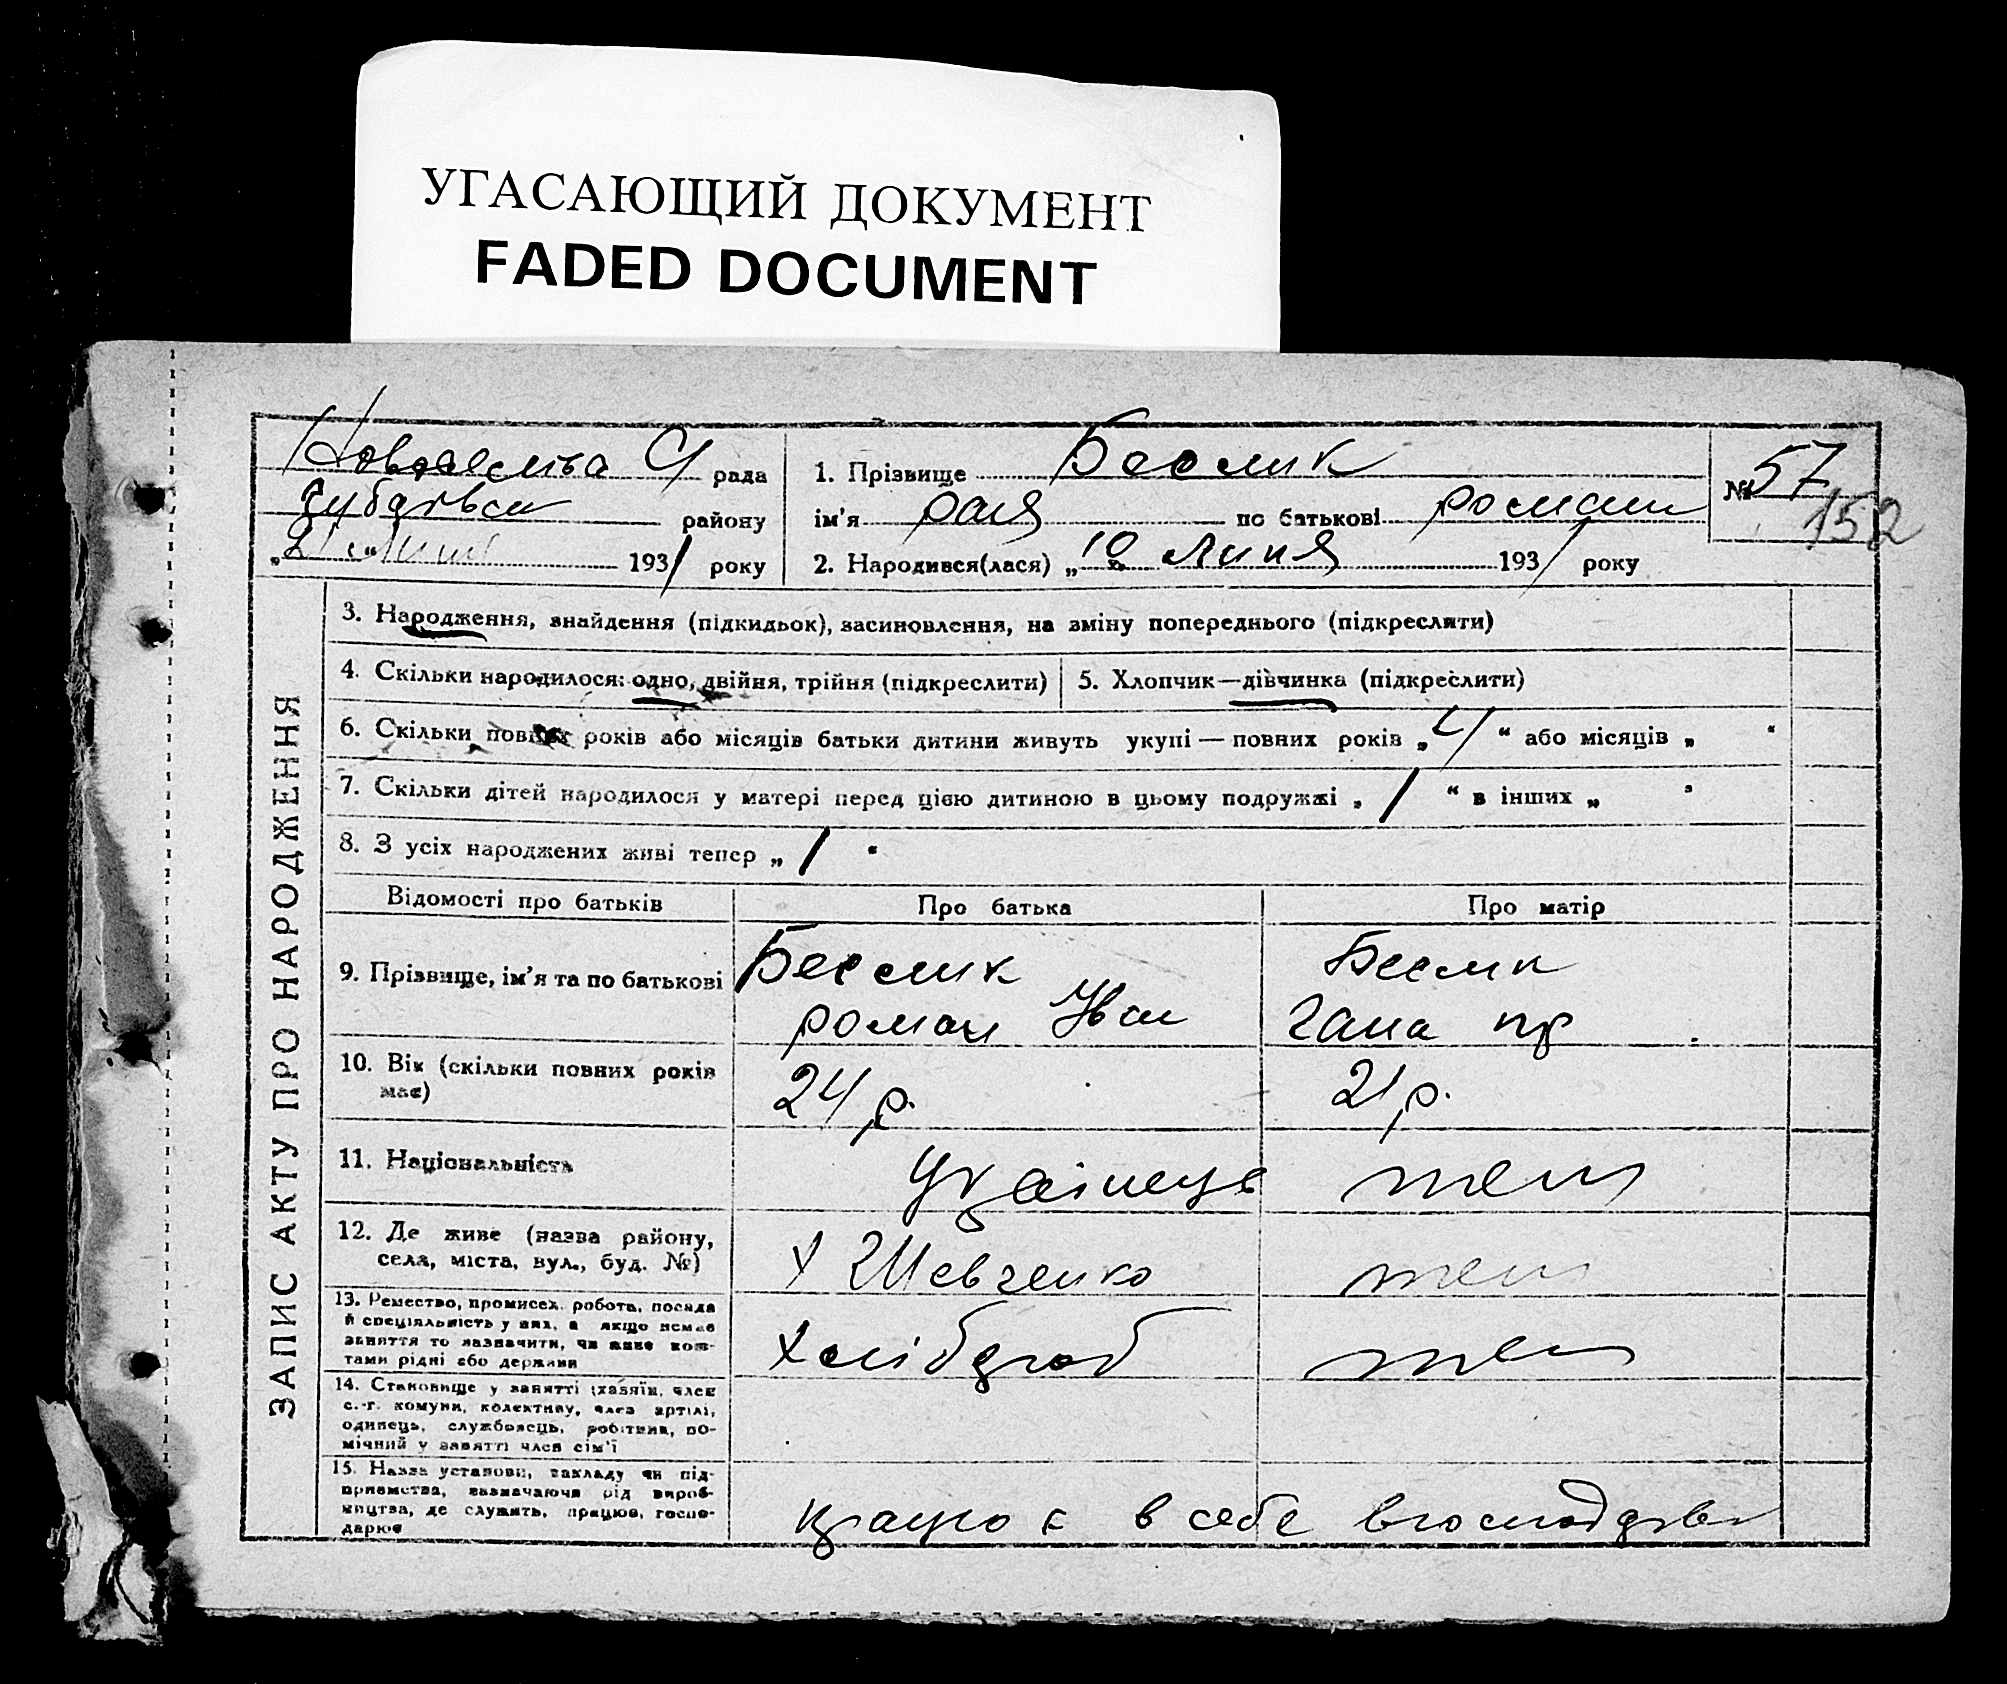 УГАСАЮЩИЙ ДОКУМЕНТ
FADED DOCUMENT
рада
району
1931 року
1. Прізвище Бесмик
ім'я рая по батькові роман
2. Народився(лася) „10 липня 1931 року
№ 57
152
ЗАПИС АКТУ ПРО НАРОДЖЕННЯ
3. Народження, знайдення (підкидьок), засиновлення, на зміну попереднього (підкреслити)
4. Скільки народилося: одно, двійня, трійня (підкреслити)
5. Хлопчик—дівчинка (підкреслити)
6. Скільки повних років або місяців батьки дитини живуть укупі — повних років „4“ або місяців „ “
7. Скільки дітей народилося у матері перед цією дитиною в цьому подружжі „1“ в інших „ “
8. З усіх народжених живі тепер „1“
Відомості про батьків
Про батька
Про матір
9. Прізвище, ім'я та по батькові
Бесмик
роман Іван
Бесмик
гана пр
10. Вік (скільки повних років
має)
24 р.
21 р.
11. Національність
Українець
теж
12. Де живе (назва району,
села, міста, вул., буд. №)
х Шевченко
теж
13. Ремество, промисел, робота, посада
й спеціяльність у них, а якщо немає
заняття то зазначити, чи живе кош-
тами рідні або держави
Хлібороб
теж
14. Становище у занятті (хазяїн, член
с.-г. комуни, колективу, член артілі,
одинець, службовець, робітник, по-
мічний у занятті член сім'ї
15. Назва установи, закладу чи під-
приємства, зазначаючи рід вироб-
ництва, де служить, працює, госпо-
дарює
працює в себе в господарстві